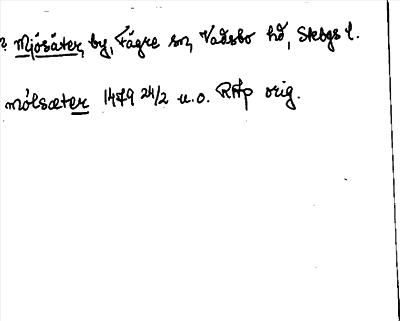 ? Mjösäter, by, Fägre sn, Vadsbo hd, Skbgs l.
mólsæter 1479 24/2 u.o. RAp orig.